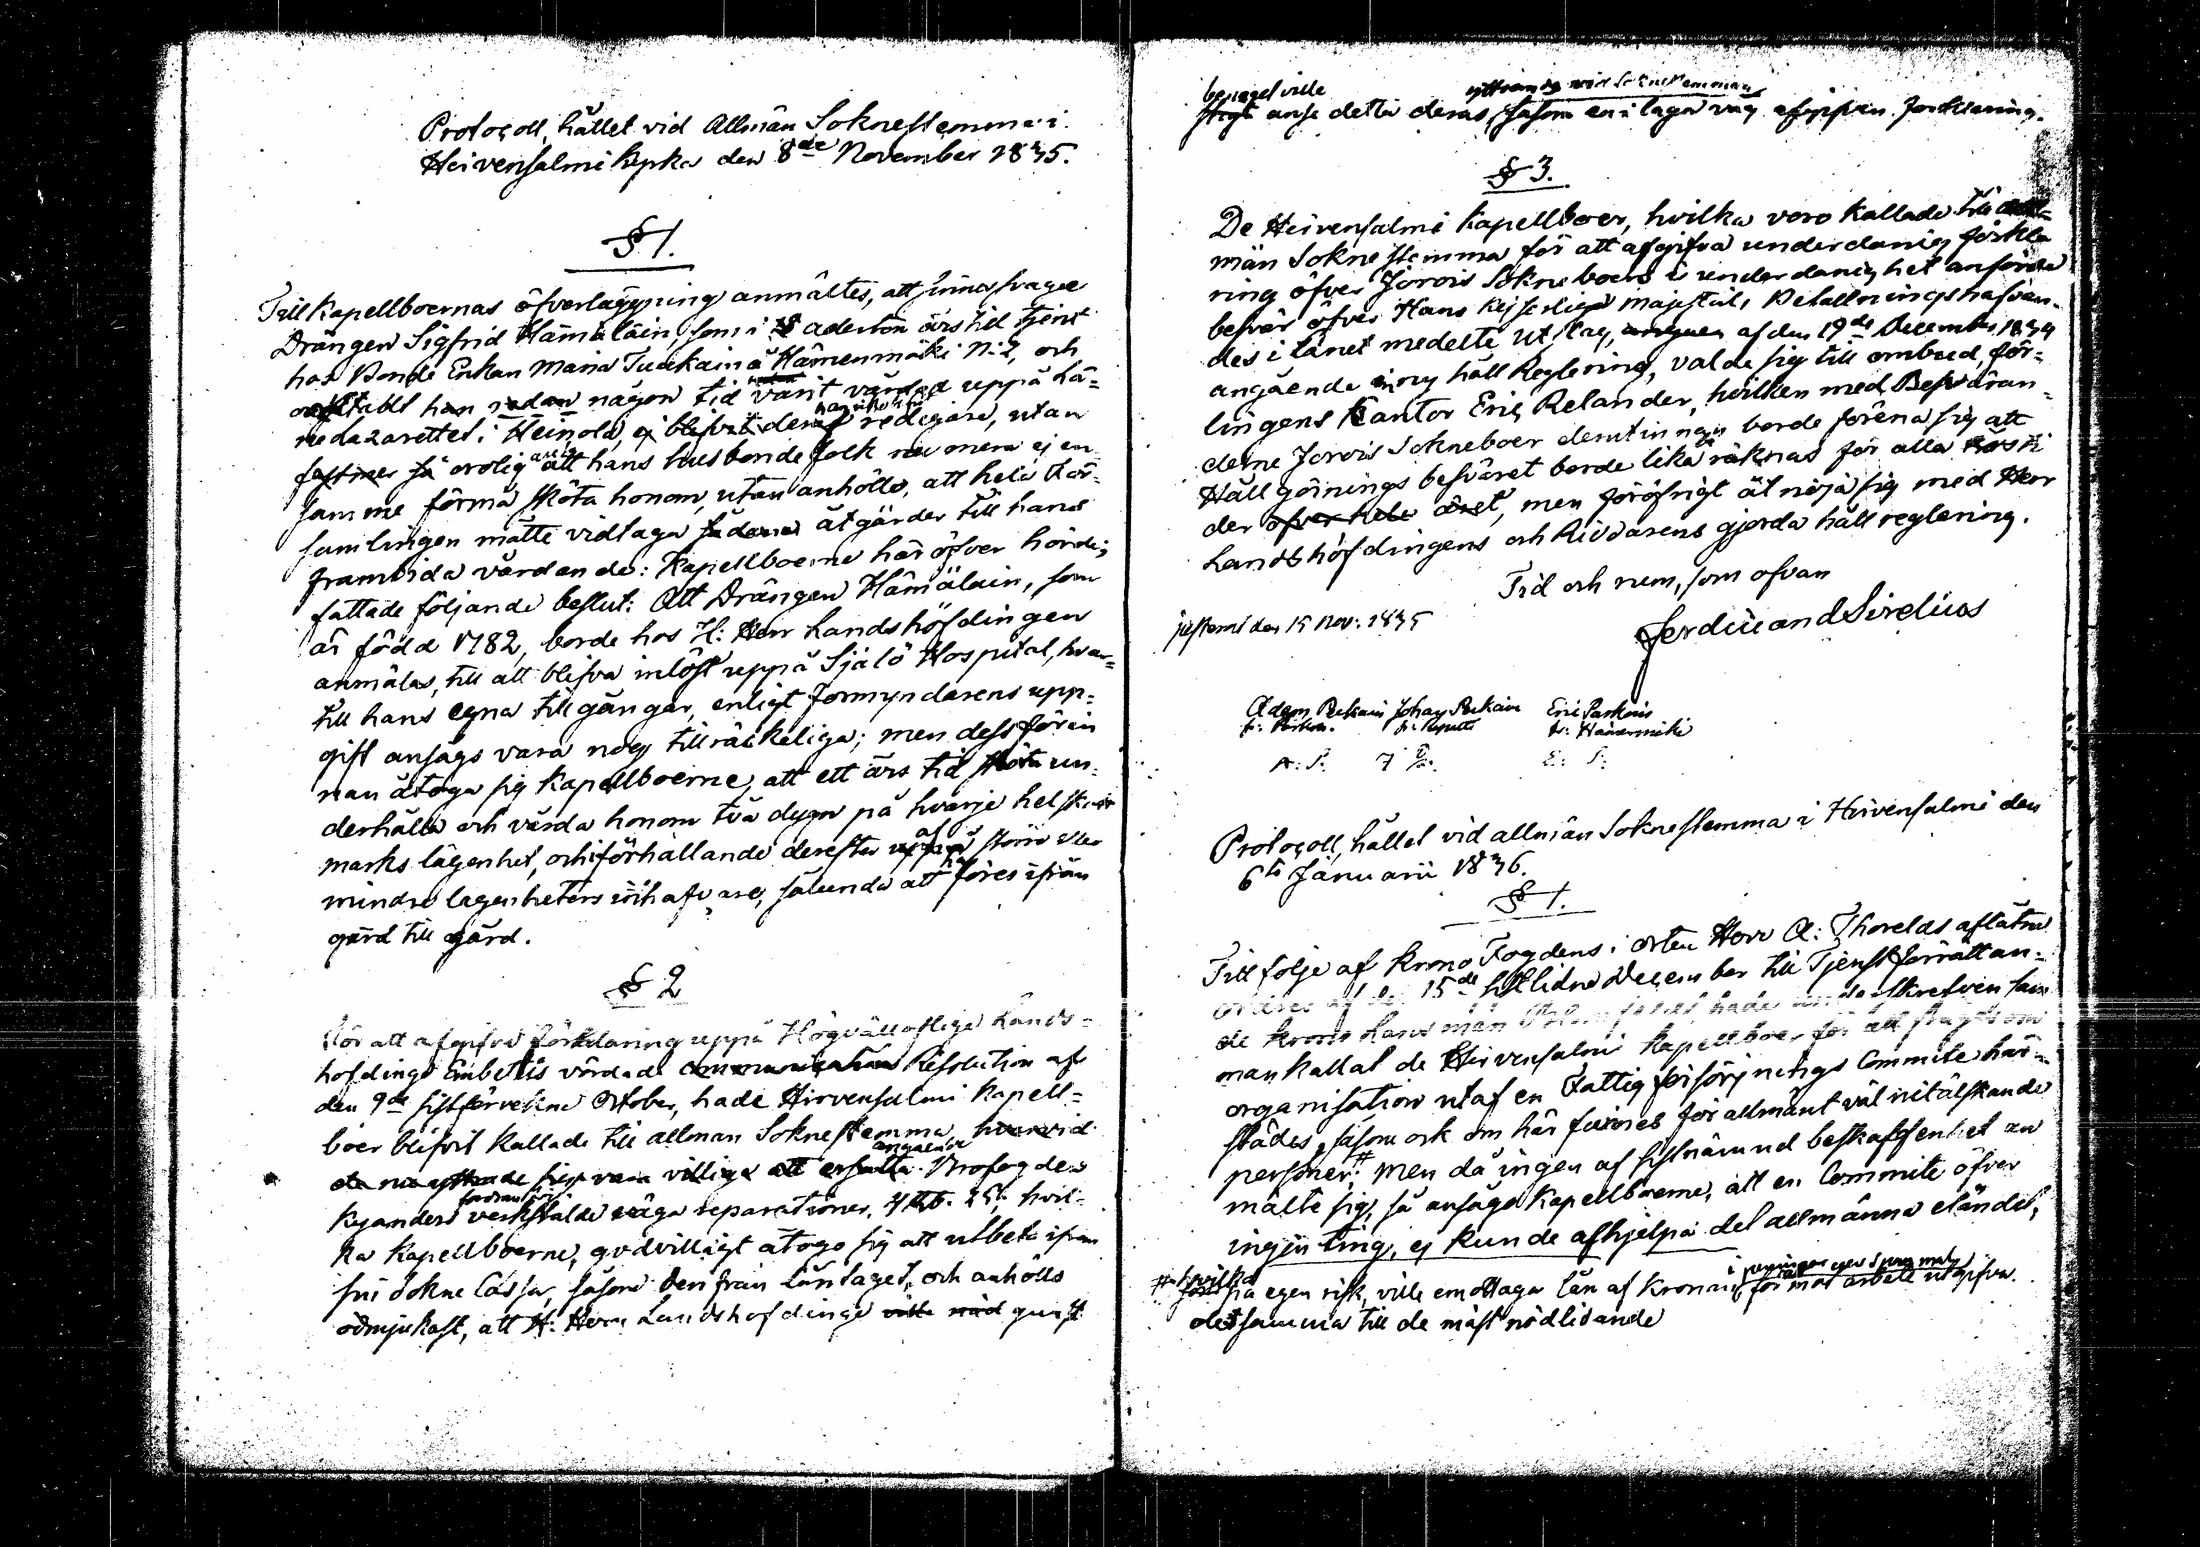 Protocoll, hållet vid Allmän Socknestemma i
Heivensalmi kpka den 8de November 1835.
§ 1.
Till Kapellboernas öfverläggning anmältes, att sinnessvage
Drängen Sigfrid Hämäläin, som i aderton års tid tjent
hos Bonde Enkan Maria Tuukain å Hämenmäki N:2, och
oaktadt han redan någon tid varit vårdad uppå Lä-
ne Lazarettet i Heinola, ej blifvit redigare, utan
orolig att hans husbonde folk nu mera ej en-
samme förmå sköta honom, utan anhölls, att hela För-
samlingen måtte vidtaga sådana åtgärder till hans
framtida vårdande: Kapellboerne häröfver hörde,
fattade följande beslut: Att Drängen Hämäläin, som
är född 1782, borde hos H: Herr Landshöfdingen
anmälas, till att blifva inlöst uppå Själö Hospital, hvar-
till hans egna tillgångar, enligt Formyndarens upp-
gift ansågs vara nog tillräckeliga; men dessförin
nan åtoga sig Kapellboerne, att ett års tid sköta un-
derhålla och vårda honom två dygn på hvarje helskatt
marks lägenhet, och i förhållande derefter af större eller
mindre lägenheters innehafvare, sålunda att föres ifrån
gård till gård.
§ 2
För att afgifva förklaring uppå Högvällofliga Lands-
höfdinge Embetets vördade communication Resolution af
den 9de sistförvekne October, hade Hirvensalmi Kapell-
boer blifvit kallade till allmän Soknestemma, hvarvid
de nu yttrade sig vara villiga att ersätta angående Profogden
Kyanders verkstälde väga reparationer, hvil-
ka Kapellboerne, godvilligt åtogo sig att utbeta ifrån
sin Sokne Cassa, såsom den från Län taget, och anhölls
ödmjukast, att H: Herr Landshöfdinge ville nåd gunst
benaget ville
anse detta deras, såsom en i laga väg afgifven förklaring.
§ 3.
De Heirvensalmi Kapellboer, hvilka voro kallade till all-
män Sokne stemma för att afgifva underdånig förkla
ring öfver Jorois Sokneboers i underdånighet anförda
besvär öfver Hans Kejserliga Majestäts Befallningshafvan-
des i länet meddelte Utslag, af den 19de December 1834
angående ny håll Reglering, valde sig till ombud för-
lingens Kantor Eric Relander, hvilken med Besväran-
derne Jorois Sokneboer derutinnan borde förena sig att
Hållgörnings besväret borde lika räknas för alla
der öfver hela året, men för öfrigt åtnöja sig med Herr
Landshöfdingens och Kividarens gjorda håll reglering.
Tid och rum, som ofvan
Ferdinand Sirelius
justerat den 15 Nov: 1835
Adam Pukain Johan Pukain Eric Paskoin
fr: Hämenmäki
A: P. J P. E: P:
Protocoll, hållet vid allmän Soknestemma i Hirvensalmi den
6te Januarii 1836.
§ 1.
Till följe af Krono Fogdens i orten Herr A: Thorelds aflåtne
ordres af den 15de sistlidne December till Tjenstförrättan-
de Krono Länsman hade underskrefven sam
mankallat de Hirvensalmi Kapellboer för att frågas om
organisation utaf en Fattigförsörjnings Commite här-
städes, såsom ock om här funnes för allmänt väl nitälskande
personer#, men då ingen af sistnämnd beskaffenhet an
mälte sig, så ansågo Kapellboerne, att en Committe öfver
ingenting, ej kunde afhjelpa det allmänna eländet,
# hvilka
på egen risk, ville emottaga lån af Kronan, för mot arbete utgifva
detsamma till de mäst nödlidande